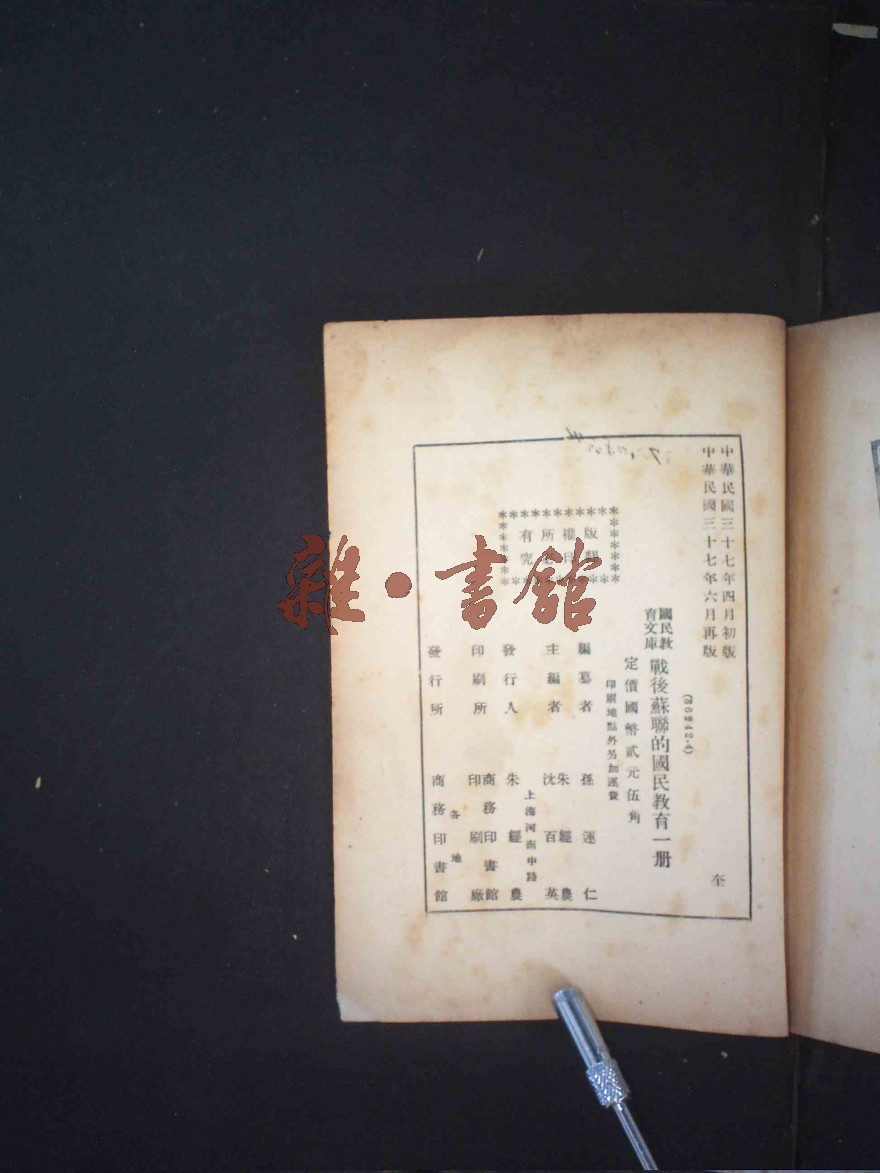 中華民國三十七年四月初版
中華民國三十七年六月再版
(36842·4)
國民教
育文庫
戰後蘇聯的國民教育一册
定價國幣貳元伍角
印刷地點外另加運費
版權所有
編纂者 孫運仁
主編者 朱經農 沈百英
發行人 朱經農
上海河南中路
印刷所 商務印書館 印刷廠
發行所 各地 商務印書館
雜·書館